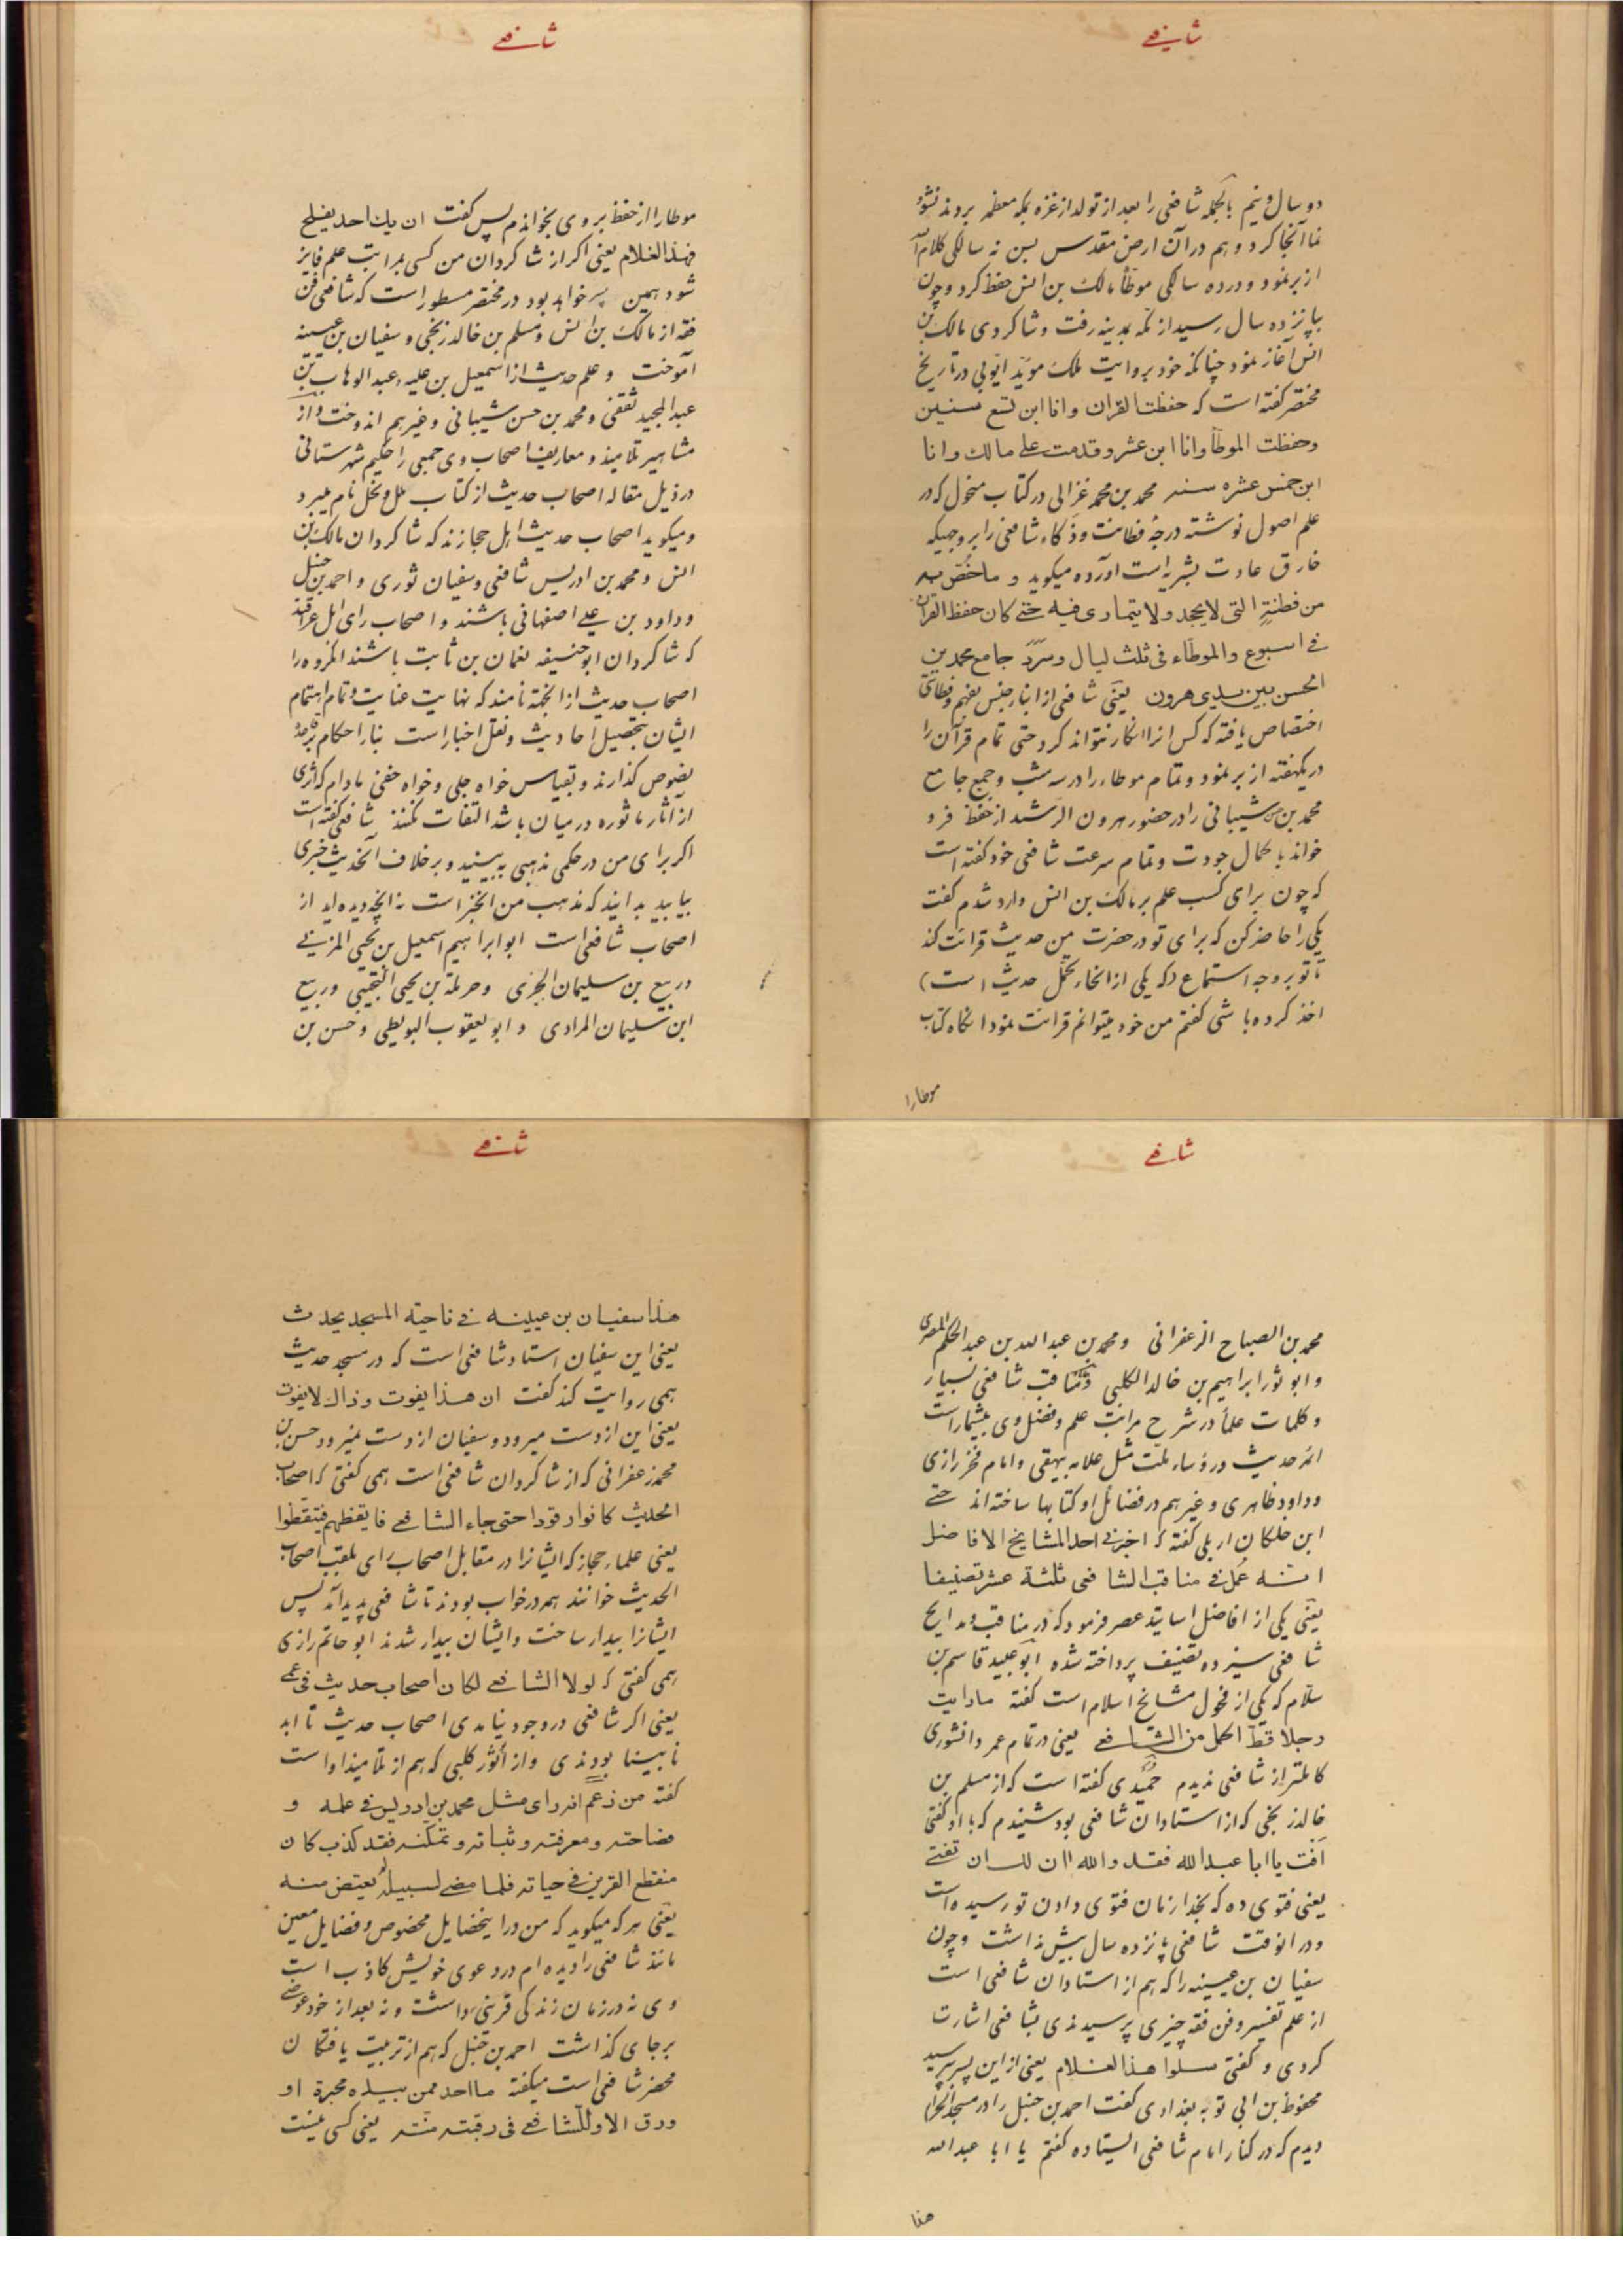 شافعی
دو سال و نیم بالجمله شافعی را بعد از تولد از غزه بمکه معظمه بردند نشو و
نما آنجا کرد و هم در آن ارض مقدس بسن نه سالگی کلام الله
از بر نمود و در ده سالگی موطأ مالک بن انس حفظ کرد و چون
بپانزده سال رسید از مکه بمدینه رفت و شاکردی مالک بن
انس آغاز نمود چنانکه خود بروایت ملک موید ایوبی در تاریخ
مختصر گفته است که حفظت القران وانا ابن تسع سنین
وحفظت الموطأ وانا ابن عشر وقدمت علی مالک وانا
ابن خمس عشره سنه محمد بن محمد غزالی در کتاب منخول که در
علم اصول نوشته درجهٔ فطانت و ذکاء شافعی را بر وجهیکه
خارق عادت بشریه است آورده میکوید و ما خُصّ به
من فطنتهِ التی لا یجحد ولا یتماری فیه حتی کان حفظ القرآن
فی اسبوع والموطّاء فی ثلث لیال و سَرَدَ جامع محمد بن
الحسن بین یدی هرون یعنی شافعی از ابناء جنس بفهم و فطانتی
اختصاص یافته که کس انرا انکار نتواند کرد حتی تمام قرآن را
در یکهفته از بر نمود و تمام موطاء را در سه شب و جمع جامع
محمد بن حسن شیبانی را در حضور هرون الرشید از حفظ فرو
خواند با کمال جودت و تمام سرعت شافعی خود گفته است
که چون برای کسب علم بر مالک بن انس وارد شدم کفت
یکی را حاضر کن که برای تو در حضرت من حدیث قرائت کند
تا تو بر وجه استماع (که یکی از انحاء تحمّل حدیث است)
اخذ کرده باشی کفتم من خود میتوانم قرائت نمود انکاه کتاب
موطا را
شافعی
موطا را از حفظ بر وی بخواندم پس کفت ان یک احد یفلح
فهذا الغلام یعنی اکر از شاکردان من کسی بمراتب علم فایز
شود همین پسر خواهد بود در مختصر مسطور است که شافعی فن
فقه از مالک بن انس و مسلم بن خالد زنجی و سفیان بن عیینه
آموخت و علم حدیث از اسمعیل بن علیه و عبد الوهاب بن
عبد المجید ثقفی و محمد بن حسن شیبانی و غیرهم اندوخت و از
مشاهیر تلامیذ و معاریف اصحاب وی جمعی را حکیم شهرستانی
در ذیل مقاله اصحاب حدیث از کتاب ملل و نحل نام میبرد
و میکوید اصحاب حدیث اهل حجازند که شاکردان مالک بن
انس و محمد بن ادریس شافعی و سفیان ثوری و احمد بن حنبل
و داود بن علی اصفهانی باشند و اصحاب رای اهل عراقند
که شاکردان ابو حنیفه نعمان بن ثابت باشند انکروه را
اصحاب حدیث از انجهة نامند که نهایت عنایت و تمام اهتمام
ایشان بتحصیل احادیث و نقل اخبار است بناء احکام بر
نصوص کذارند و بقیاس خواه جلی و خواه خفی مادام که اثری
از آثار ماثوره در میان باشد التفات نکنند شافعی کفته است
اکر برای من در حکمی مذهبی ببینید و بر خلاف آن حدیث خبری
بیابید بدانید که مذهب من انخبر است نه انچه دیده اید از
اصحاب شافعی است ابو ابراهیم اسمعیل بن یحیی المزنی
و ربیع بن سلیمان الجیزی و حرملة بن یحیی التجیبی و ربیع
ابن سلیمان المرادی و ابو یعقوب البویطی و حسن بن
شافعی
محمد بن الصباح الزعفرانی و محمد بن عبد الله بن عبد الحکم المصری
و ابو ثور ابراهیم بن خالد الکلبی و مناقب شافعی بسیار
و کلمات علما در شرح مراتب علم و فضل وی بیشمار است
ائمه حدیث و رؤساء ملت مثل علامه بیهقی و امام فخر رازی
و داود ظاهری و غیرهم در فضائل او کتابها ساخته اند حتی
ابن خلکان اربلی کفته که اخبرنی احد المشایخ الافاضل
انه عُمل فی مناقب الشافعی ثلثة عشر تصنیفا
یعنی یکی از افاضل اساتید عصر فرمود که در مناقب و مدایح
شافعی سیزده تصنیف پرداخته شده ابو عبید قاسم بن
سلّام که یکی از فحول مشایخ اسلام است کفته ما رایت
رجلا قطّ اکمل من الشافعی یعنی در تمام عمر دانشوری
کاملتر از شافعی ندیدم حمیدی کفته است که از مسلم بن
خالد زنجی که از استادان شافعی بود شنیدم که با او کفتی
اَفت یا ابا عبد الله فقد والله اٰن لک ان تفتی
یعنی فتوی ده که بخدا زمان فتوی دادن تو رسیده است
و در انوقت شافعی پانزده سال بیش نداشت و چون
سفیان بن عیینه را که هم از استادان شافعی است
از علم تفسیر و فن فقه چیزی پرسیدندی بشافعی اشارت
کردی و کفتی سلوا هذا الغلام یعنی از این پسر بپرسید
محفوظ بن ابی توبه بغدادی کفت احمد بن حنبل را در مسجد الحرام
دیدم که در کنار امام شافعی ایستاده کفتم یا ابا عبد الله
هذا
شافعی
هذا سفیان بن عیینه فی ناحیة المسجد یحدث
یعنی این سفیان استاد شافعی است که در مسجد حدیث
همی روایت کند کفت ان هذا یفوت و ذاک لا یفوت
یعنی این از دست میرود و سفیان از دست نمیرود حسن بن
محمد زعفرانی که از شاکردان شافعی است همی کفتی که اصحاب
الحدیث کانوا رقودا حتی جاء الشافعی فایقظهم فتیقّظوا
یعنی علماء حجاز که ایشانرا در مقابل اصحاب رای بلقب اصحاب
الحدیث خوانند همه در خواب بودند تا شافعی پدید آمد پس
ایشانرا بیدار ساخت و ایشان بیدار شدند ابو حاتم رازی
همی کفتی که لولا الشافعی لکان اصحاب حدیث فی عمی
یعنی اکر شافعی در وجود نیامدی اصحاب حدیث تا ابد
نابینا بودندی و از ابو ثور کلبی که هم از تلامیذ او است
کفته من زعم انه رای مثل محمد بن ادریس فی علمه و
فصاحته و معرفته و ثباته و تمکّنه فقد کذب کان
منقطع القرین فی حیاته فلما مضی لسبیله لم یعتض منه
یعنی هر که میکوید که من در اینخصایل مخصوص و فضایل معین
مانند شافعی را دیده ام در دعوی خویش کاذب است
وی نه در زمان زندکی قرینی داشت و نه بعد از خود عوضی
بر جای کذاشت احمد بن حنبل که هم از تربیت یافتکان
محضر شافعی است میکفته ما احد ممن بیده محبرة او
ورق الا و للشافعی فی رقبته منّته یعنی کسی نیست